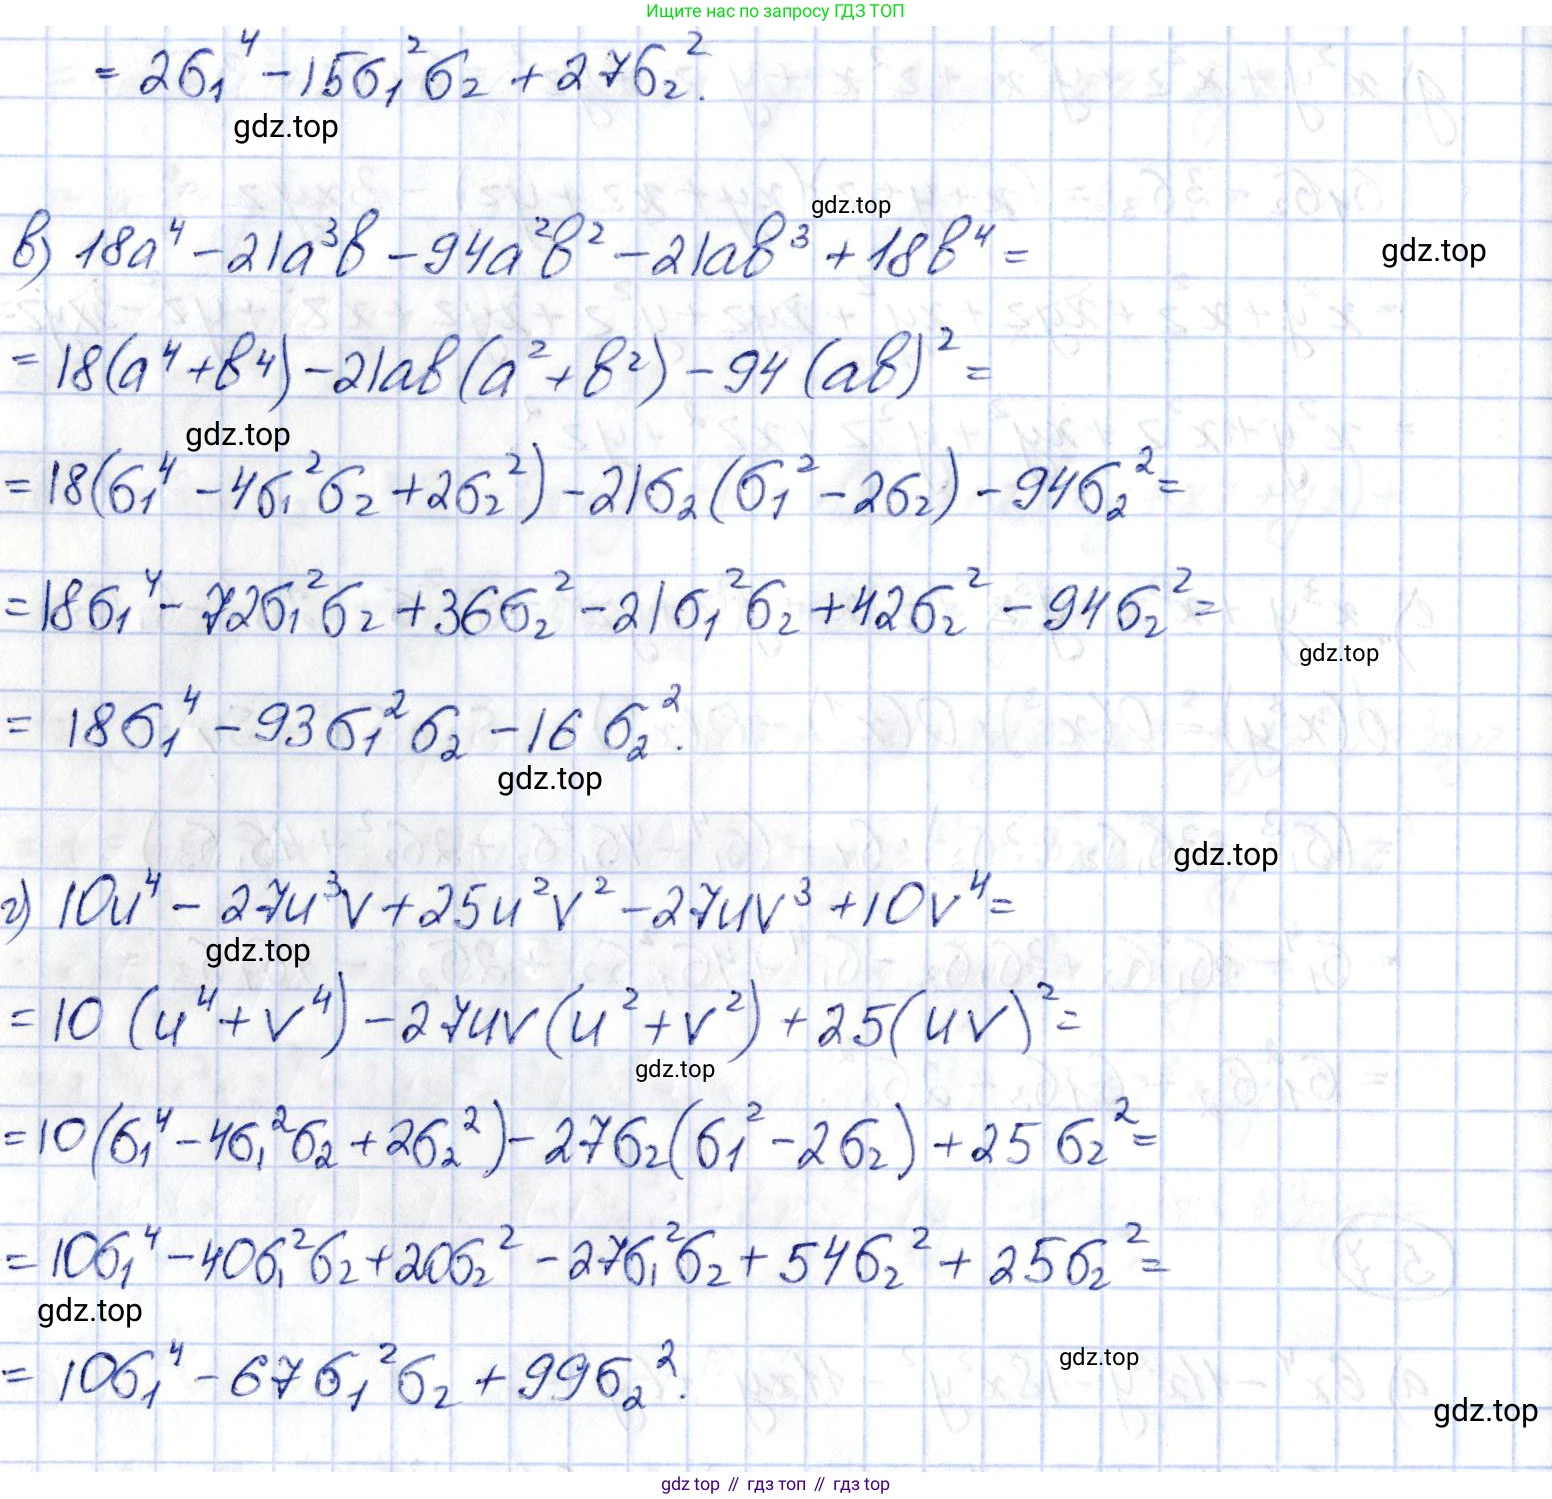 Ищите нас по запросу ГДЗ ТОП
= 2б₁⁴ - 15б₁²б₂ + 27б₂².
gdz.top
gdz.top
в) 18a⁴ - 21a³b - 94a²b² - 21ab³ + 18b⁴ =
gdz.top
= 18(a⁴ + b⁴) - 21ab(a² + b²) - 94(ab)² =
gdz.top
= 18(б₁⁴ - 4б₁²б₂ + 2б₂²) - 21б₂(б₁² - 2б₂) - 94б₂² =
= 18б₁⁴ - 72б₁²б₂ + 36б₂² - 21б₁²б₂ + 42б₂² - 94б₂² =
gdz.top
= 18б₁⁴ - 93б₁²б₂ - 16б₂².
gdz.top
gdz.top
г) 10u⁴ - 27u³v + 25u²v² - 27uv³ + 10v⁴ =
gdz.top
= 10(u⁴ + v⁴) - 27uv(u² + v²) + 25(uv)² =
gdz.top
= 10(б₁⁴ - 4б₁²б₂ + 2б₂²) - 27б₂(б₁² - 2б₂) + 25б₂² =
= 10б₁⁴ - 40б₁²б₂ + 20б₂² - 27б₁²б₂ + 54б₂² + 25б₂² =
gdz.top
gdz.top
= 10б₁⁴ - 67б₁²б₂ + 99б₂².
gdz.top
gdz top // гдз топ // gdz top